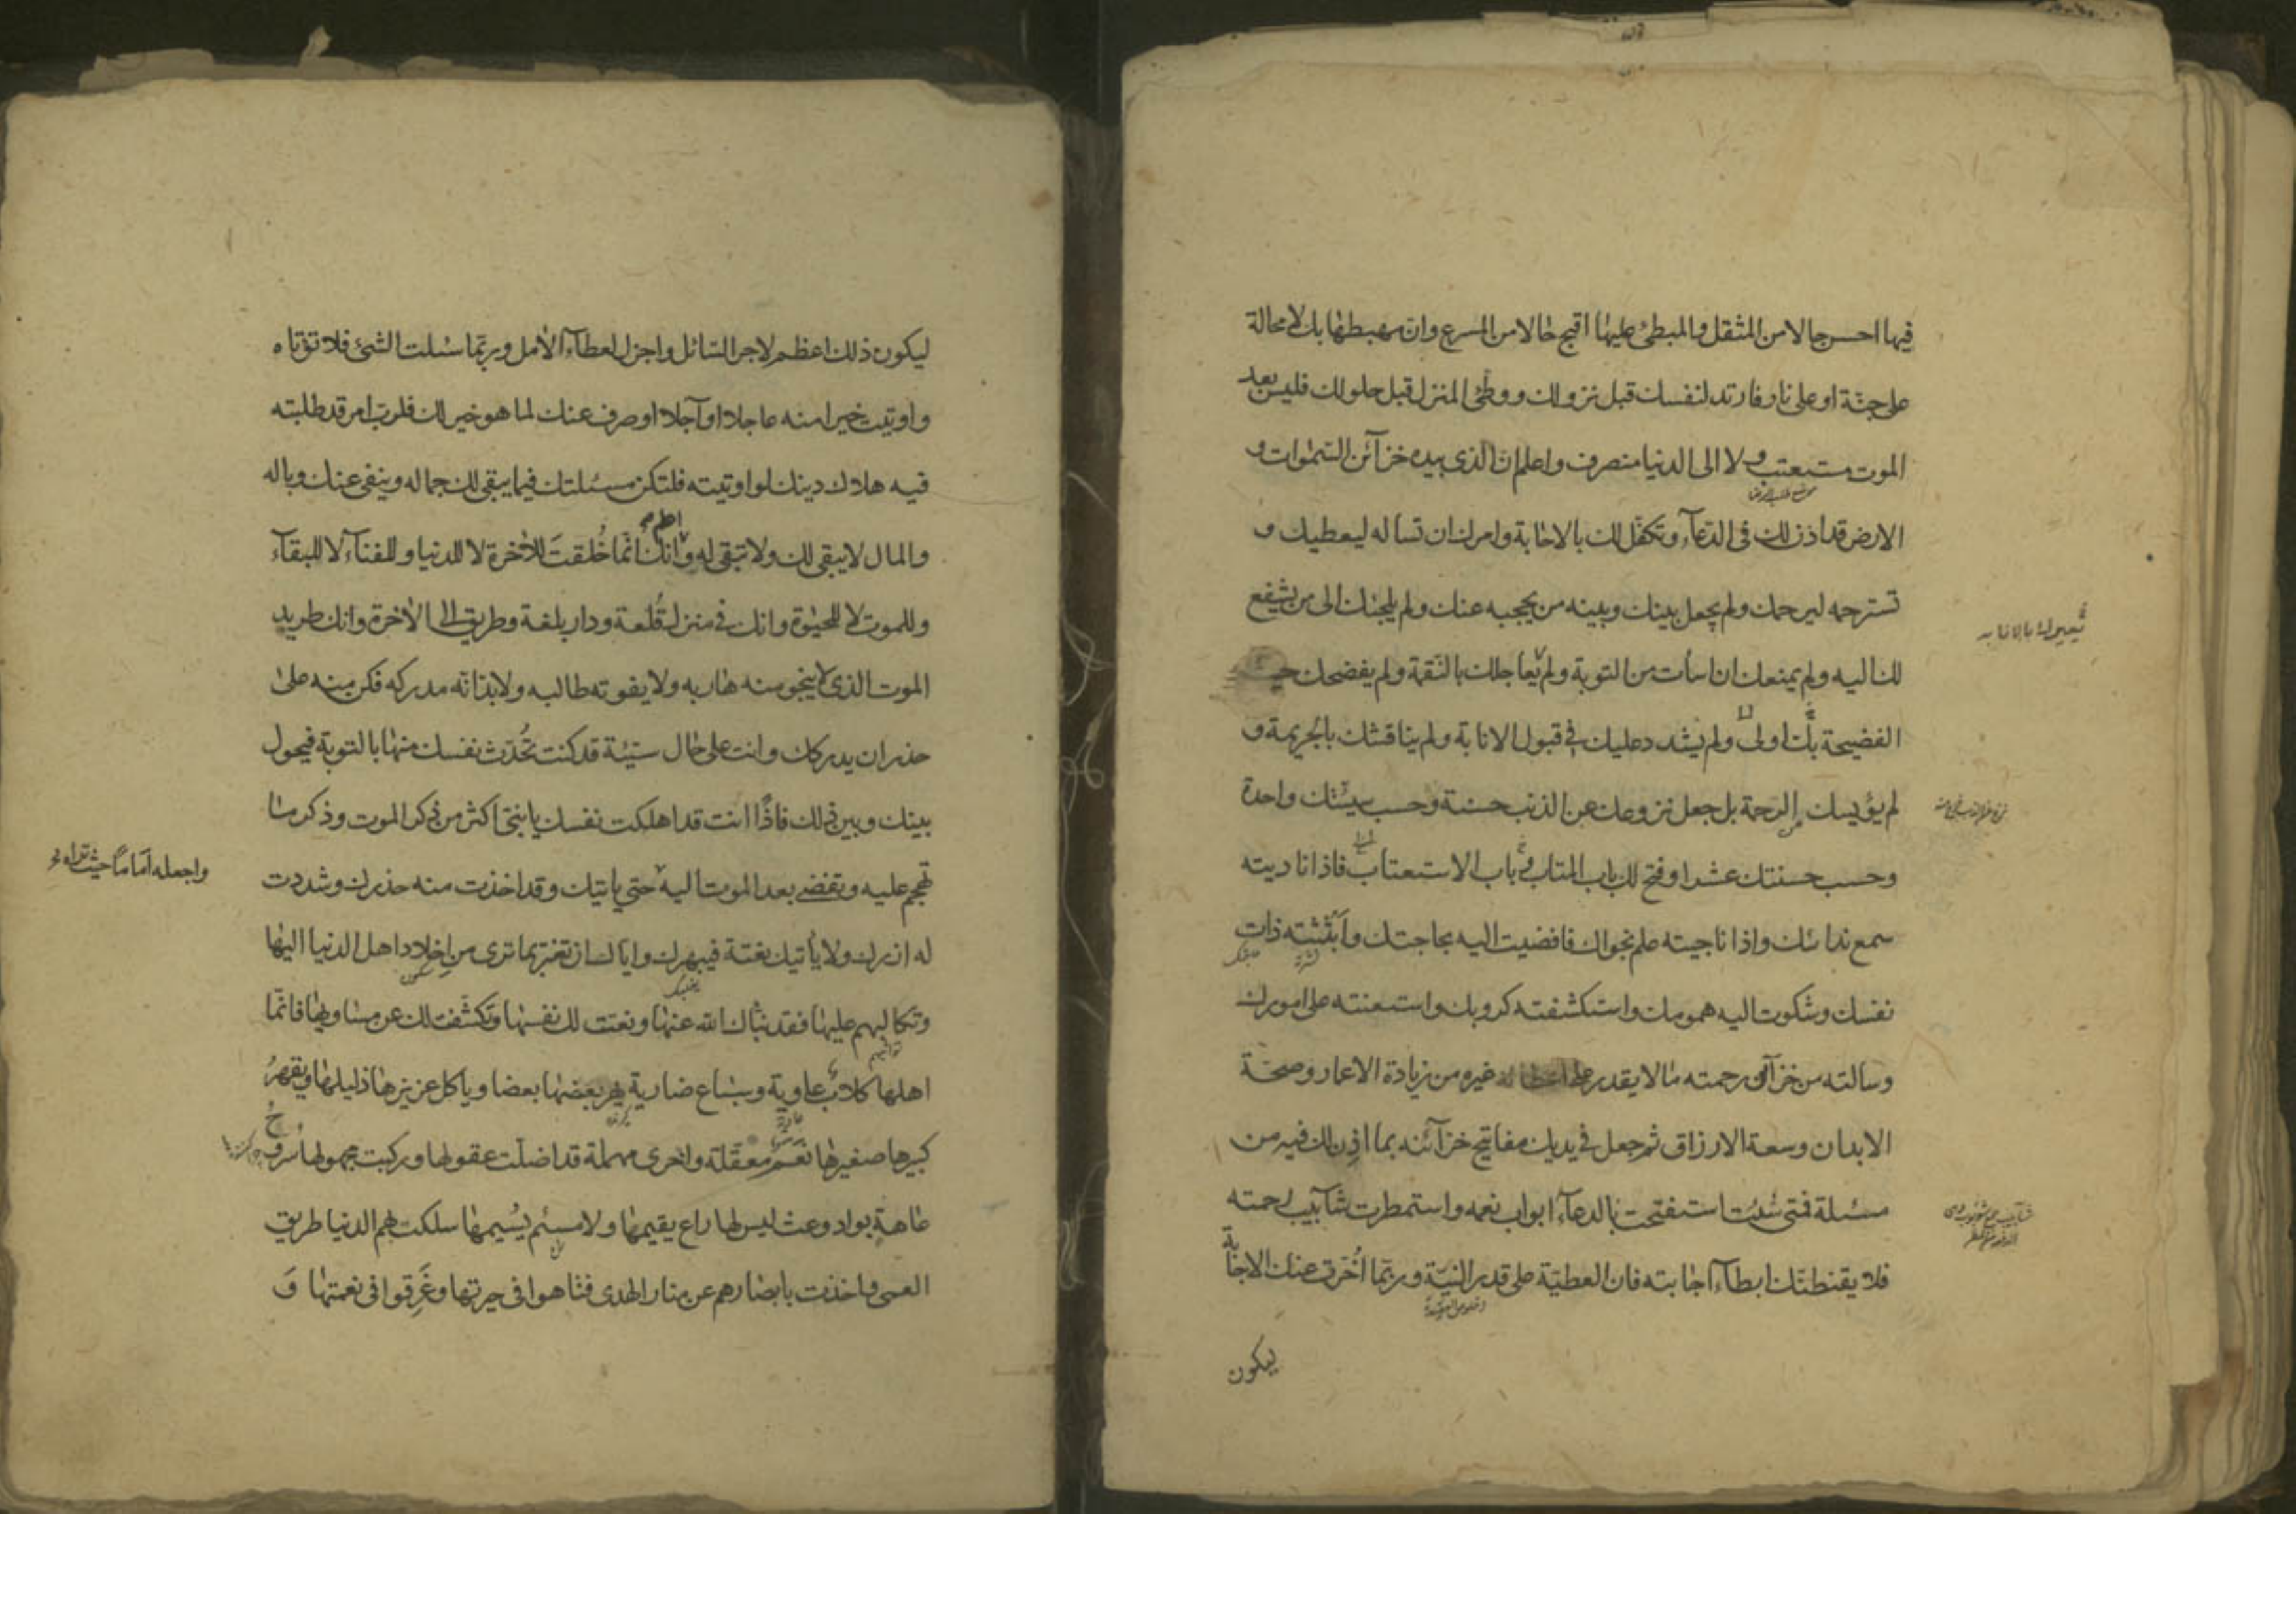 فيها احسن حالا من المثقل والمبطئ عليها اقبح حالا من المسرع وان مهبطها بك لا محالة
على جنّة او على نار فارتد لنفسك قبل نزولك ووطّئ المنزل قبل حلولك فليس بعد
الموت مستعتب ولا الى الدنيا منصرف واعلم ان الذى بيده خزآئن السمٰوات و
الارض قد اذن لك فى الدعآء وتكفّل لك بالاجابة وامرك ان تساله ليعطيك و
تسترحمه ليرحمك ولم يجعل بينك وبينه من يحجبه عنك ولم يلجئك الى من يشفع
لك اليه ولم يمنعك ان اسأت من التوبة ولم يعاجلك بالنّقمة ولم يفضحك حيث
الفضيحة بك اولى ولم يشدد عليك فى قبول الانابة ولم يناقشك بالجريمة و
لم يؤيسك من الرحمة بل جعل نزوعك عن الذنب حسنة وحسب سيئتك واحدة
وحسب حسنتك عشرا وفتح لك باب المتاب و باب الاستعتاب فاذا ناديته
سمع ندائك واذا ناجيته علم نجواك فافضيت اليه بحاجتك وابثثته ذات
نفسك وشكوت اليه همومك واستكشفته كروبك واستعنته على امورك
وسالته من خزآئن رحمته ما لا يقدر على اعطائه غيره من زيادة الاعمار وصحّة
الابدان وسعة الارزاق ثم جعل فى يديك مفاتيح خزآئنه بما اذن لك فيه من
مسئلة فمتى شئت استفتحت بالدعآء ابواب نعمه واستمطرت شآبيب رحمته
فلا يقنطنّك ابطآء اجابته فان العطيّة على قدر النيّة وربّما اُخّرت عنك الاجابة
ليكون
ليكون ذلك اعظم لاجر السّائل واجزل لعطآء الآمل وربّما سئلت الشئ فلا تؤتاه
واوتيت خيرا منه عاجلا او آجلا او صرف عنك لما هو خير لك فلربّ امر قد طلبته
فيه هلاك دينك لو اوتيته فلتكن مسئلتك فيما يبقى لك جماله وينفى عنك وباله
والمال لا يبقى لك ولا تبقى له واعلم انك انّما خُلقتَ للآخرة لا للدنيا وللفنآء لا للبقآء
وللموت لا للحيٰوة وانك فى منزل قُلعة ودار بلغة وطريق الى الآخرة وانك طريد
الموت الذى لا ينجو منه هاربه ولا يفوته طالبه ولابدّ انّه مدركه فكن منه على
حذر ان يدركك وانت على حال سيّئة قد كنت تُحدّث نفسك منها بالتوبة فيحول
بينك وبين ذلك فاذًا انت قد اهلكت نفسك يا بنىّ اكثر من ذكر الموت وذكر ما
تهجم عليه وتفضى بعد الموت اليه حتى ياتيك وقد اخذت منه حذرك وشددت
واجعله اماما حيث تراه
له ازرك ولا يأتيك بغتة فيبهرك واياك ان تغترّ بما ترى من اخلاد اهل الدنيا اليها
وتكالبهم عليها فقد نبّاك الله عنها ونعتت لك نفسها وتكشّفت لك عن مساويها فانّما
اهلها كلاب عاوية وسباع ضارية يهرّ بعضها بعضا ويأكل عزيزها ذليلها ويقهرُ
كبيرها صغيرها نَعَمٌ معقّلة واخرى مهملة قد اضلّت عقولها وركبت مجهولها سُرُوحُ
عاهةٍ بواد وعث ليس لها راع يقيمها ولا مسيم يُسيمها سلكت بهم الدنيا طريق
العمى واخذت بابصارهم عن منار الهدى فتاهوا فى حيرتها وغَرِقوا فى نعمتها وَ